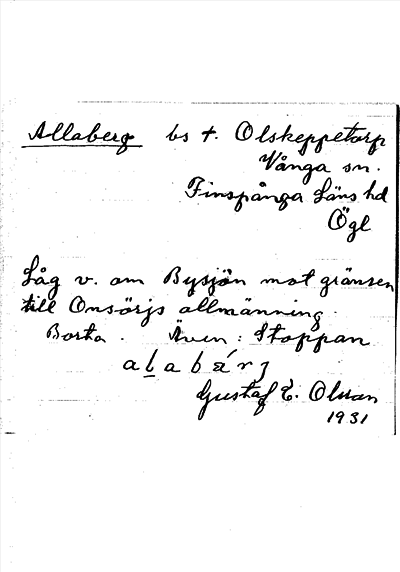 Allaberg bs t. Olskeppetorp
Vånga sn.
Finspånga Läns hd
Ögl
Låg v. om Bysjön mot gränsen
till Onsörjs allmänning.
Borta. Även: Stoppan
alabärj
Gustaf E. Olsson
1931